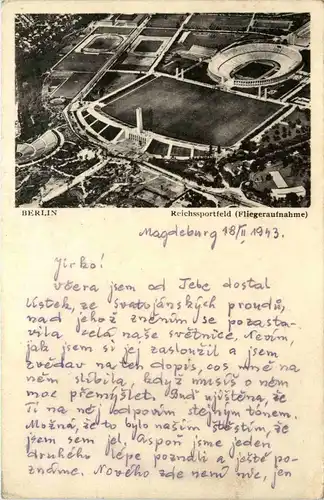 BERLIN Reichssportfeld (Fliegeraufnahme)
Magdeburg 18/II 1943.
Jirko!
včera jsem od Tebe dostal
lístek, ze svatojánských proudů,
nad jehož zněním se pozasta-
vila celá naše světnice. Nevím,
jak jsem si jej zasloužil a jsem
zvědav na ten dopis, cos mně na
něm slíbila, když musíš o něm
moc přemýšlet. Buď ujištěna, že
Ti na něj odpovím stejným tónem.
Možná, že to bylo naším štěstím, že
jsem sem jel. Aspoň jsme jeden
druhého lépe poznali a ještě po-
známe. Nového zde není nic, jen